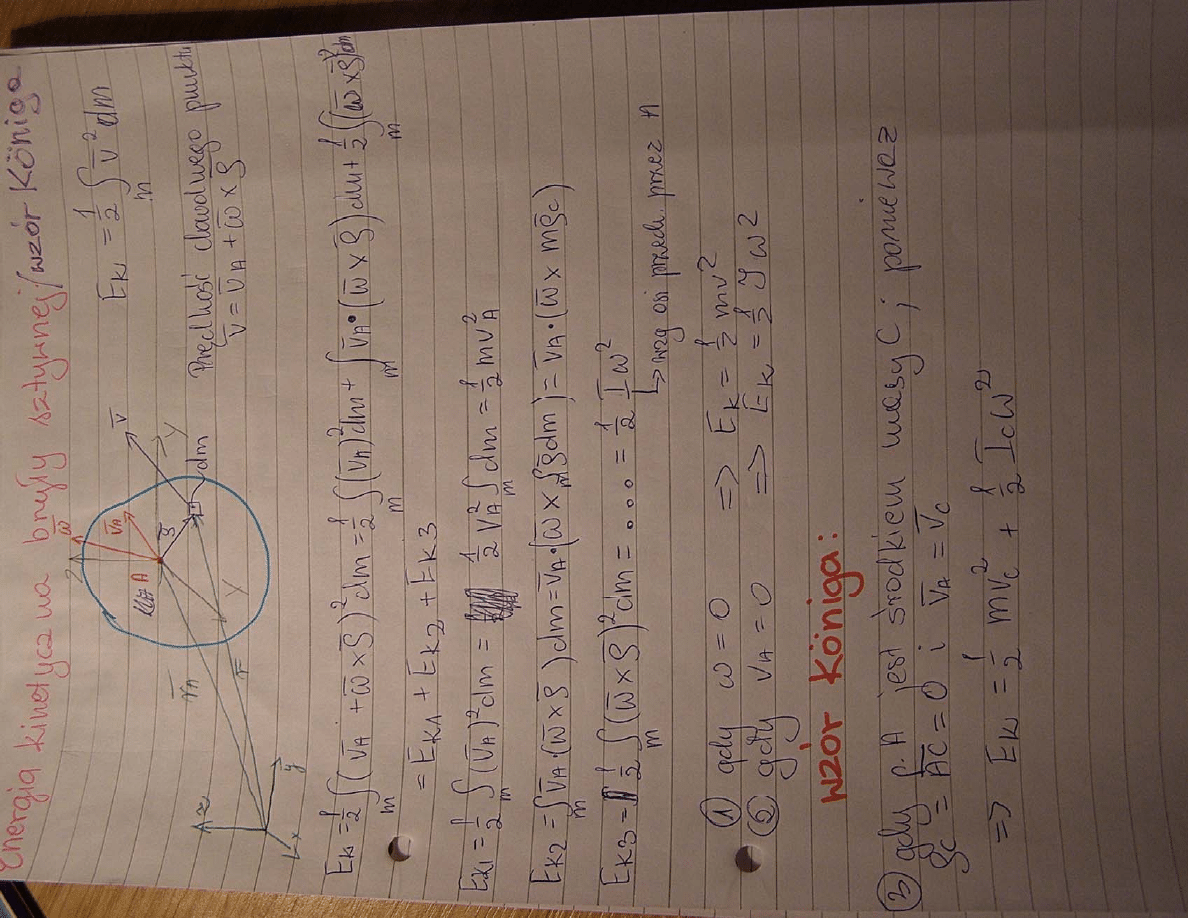 Energia kinetyczna bryły sztywnej/wzór Königa
E_k = 1/2 ∫_m v̄² dm
Prędkość dowolnego punktu
v̄ = v̄_A + ω̄ × ρ̄
z
ω̄
v̄_A
A
ρ̄
v̄
Y
dm
Y
r̄_A
r̄
z
y
x
E_k = 1/2 ∫_m (v̄_A + ω̄ × ρ̄)² dm = 1/2 ∫_m (v̄_A)² dm + ∫_m v̄_A • (ω̄ × ρ̄) dm + 1/2 ∫_m (ω̄ × ρ̄)² dm
= E_k1 + E_k2 + E_k3
E_k1 = 1/2 ∫_m (v̄_A)² dm = 1/2 v_A² ∫_m dm = 1/2 mv_A²
E_k2 = ∫_m v̄_A • (ω̄ × ρ̄) dm = v̄_A • (ω̄ × ∫_m ρ̄ dm) = v̄_A • (ω̄ × mρ̄_c)
E_k3 = 1/2 ∫_m (ω̄ × ρ̄)² dm = .... = 1/2 I ω²
↳ wzg osi przech. przez A
① gdy ω = 0 => E_k = 1/2 mv²
② gdy v_A = 0 => E_k = 1/2 J ω²
Wzór Königa:
③ gdy p. A jest środkiem masy C ; ponieważ
ρ_c = AC = 0 i v̄_A = v̄_c
=> E_k = 1/2 mv_c² + 1/2 I_c ω²